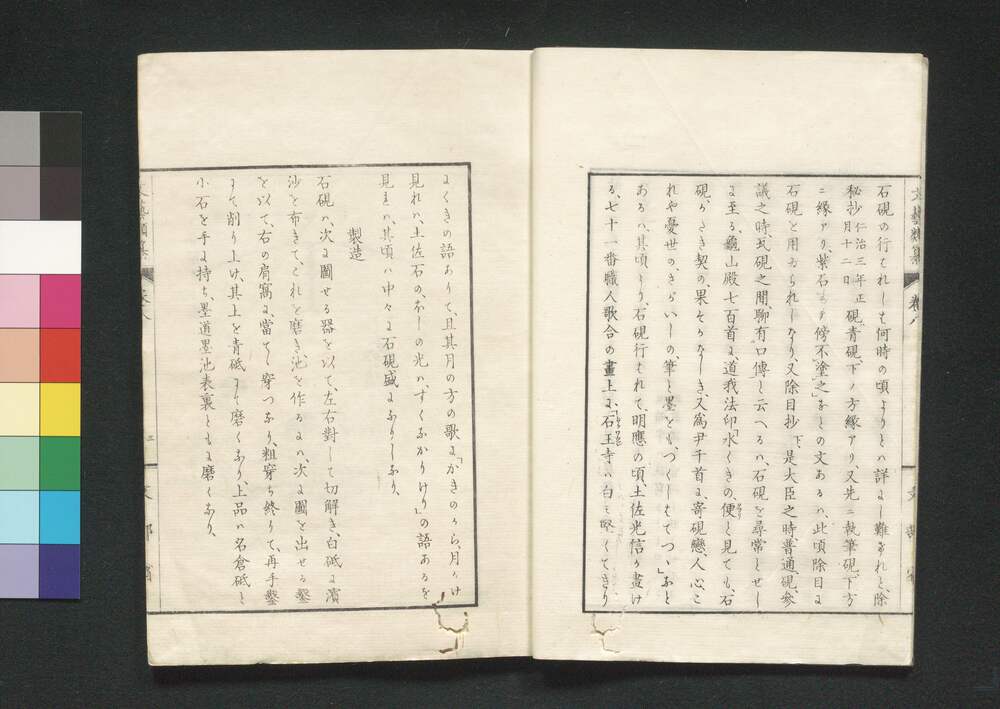 石硯の行それしも何時の頃よりとハ詳よし難けれと、除
秘抄 仁治三年正月十二日 硯、青硯、下ノ方縁アリ、又先ニ執筆硯、下方
ニ縁アリ、紫石 傍不塗之」などの文あるハ、此頃除目よ
石硯と用ゐられしなり、又除目抄下、是大臣之時、普通硯、參
議之時、瓦硯之間、聊有口傳と云へるハ、石硯を尋常とせし
よ至る、龜山殿七百首よ、道我法印「水くきの、便と見ても、石
硯、かたき契の、果そかなしき、又爲尹千首よ、寄硯戀、人心、こ
れや憂世の、きらいしの筆と墨とも、つくしもてつゝ」なと
あるハ、其頃より、石硯行それて、明應の頃、土佐光信か畫け
る、七十一番職人歌合の畫上よ、「石王寺ハ白ミ堅くて、きり
よくきの語ありて、且其月の方の歌よ「かきのから、月かけ
見れハ、土佐石の、ほしの光ハ、すくなかりけり」の語あるを
見れハ、其頃ハ中々よ石硯盛よなりしなり、
製造
石硯ハ、次よ圖せる器を以て、左右對して切解き、白砥よ濱
沙と布きて、これを磨き、池を作るよハ、次よ圖を出せる鏨
を以て、右の肩窩よ、當てゝ穿つなり、粗穿ち終りて、再手鏨
よて削り上け、其上を青砥よて磨くなり、上品ハ名倉砥と
小石を手よ持ち、墨道墨池表裏ともよ磨くなり、